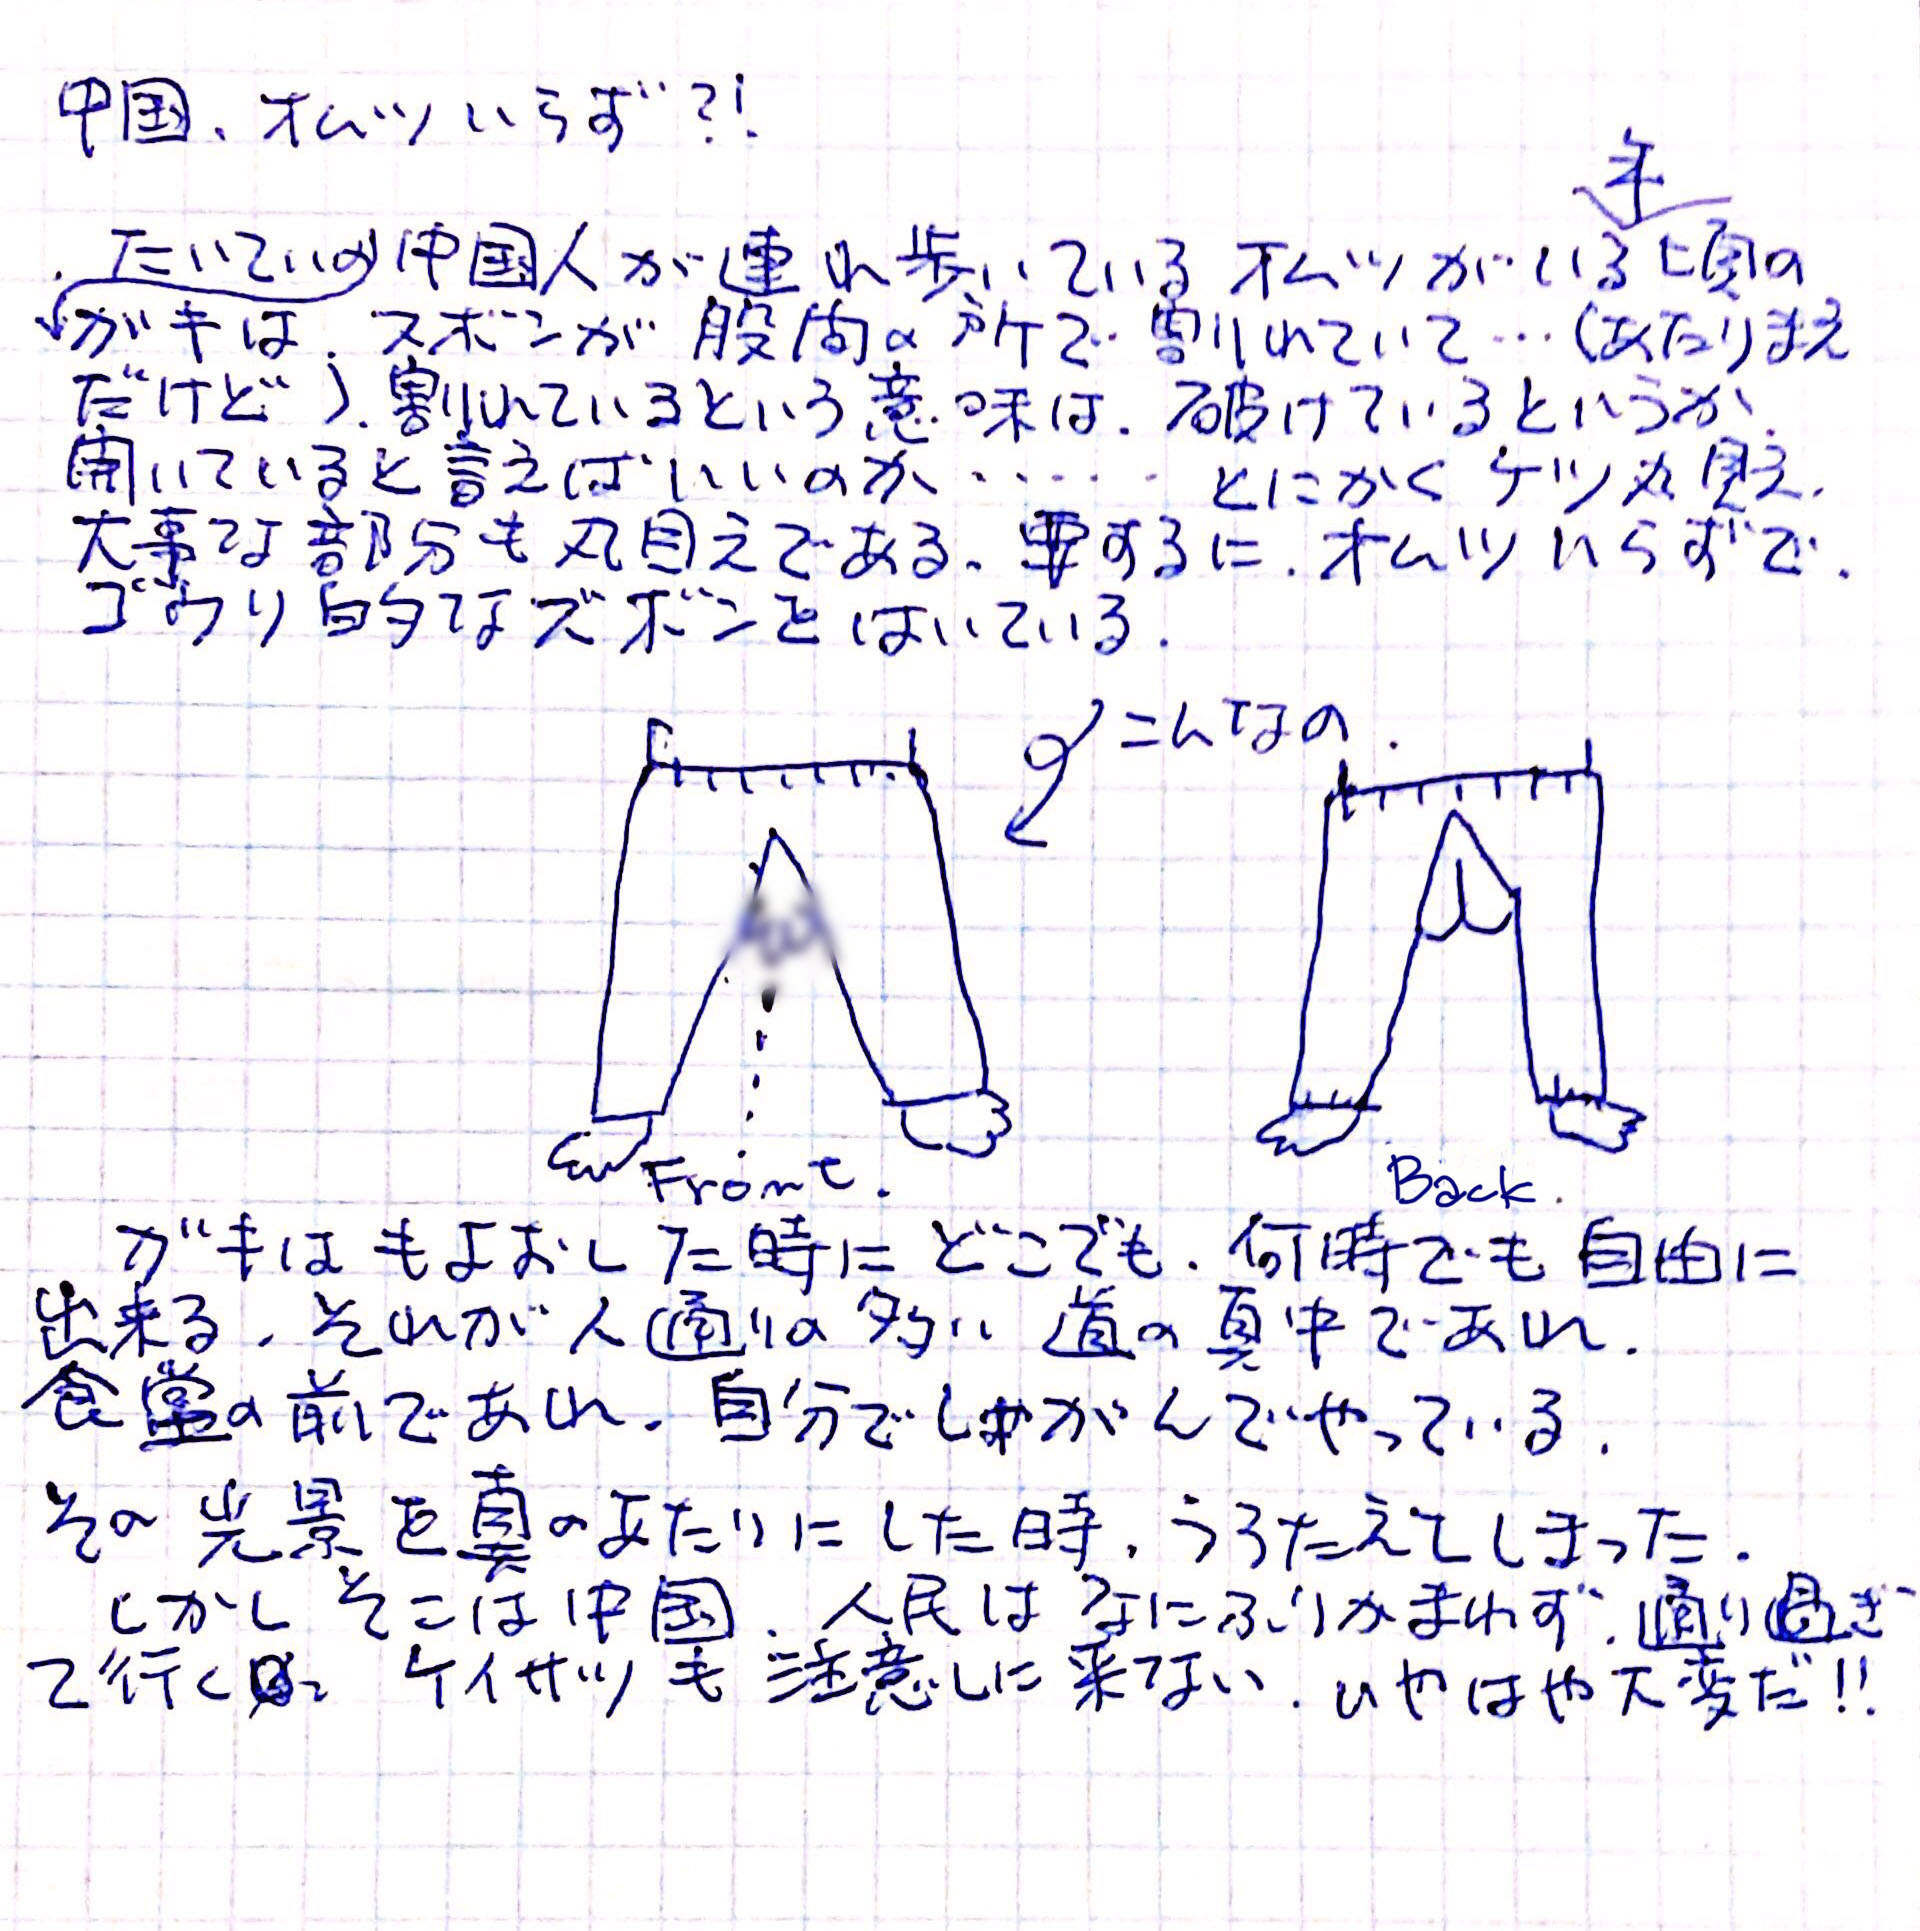 中国、オムツいらず?!
年
たいていの中国人が連れ歩いているオムツがいる頃の
ガキは、ズボンが股間の所で割れていて…(あたりまえ
だけど)、割れているという意味は、破けているというか、
開いていると言えばいいのか…… とにかくケツ丸見え、
大事な部分も丸見えである。要するに、オムツいらずで、
ゴウリ的なズボンをはいている。
こんなの.
Front.
Back.
ガキはもよおした時にどこでも、何時でも自由に
出来る。それが人通りの多い道の真中であれ、
食堂の前であれ、自分でしゃがんでやっている。
その光景を真のあたりにした時、うろたえてしまった。
しかしそこは中国、人民はなにふりかまわず、通り過ぎ
て行くし、ケイサツも注意しに来ない。いやはや大変だ!!